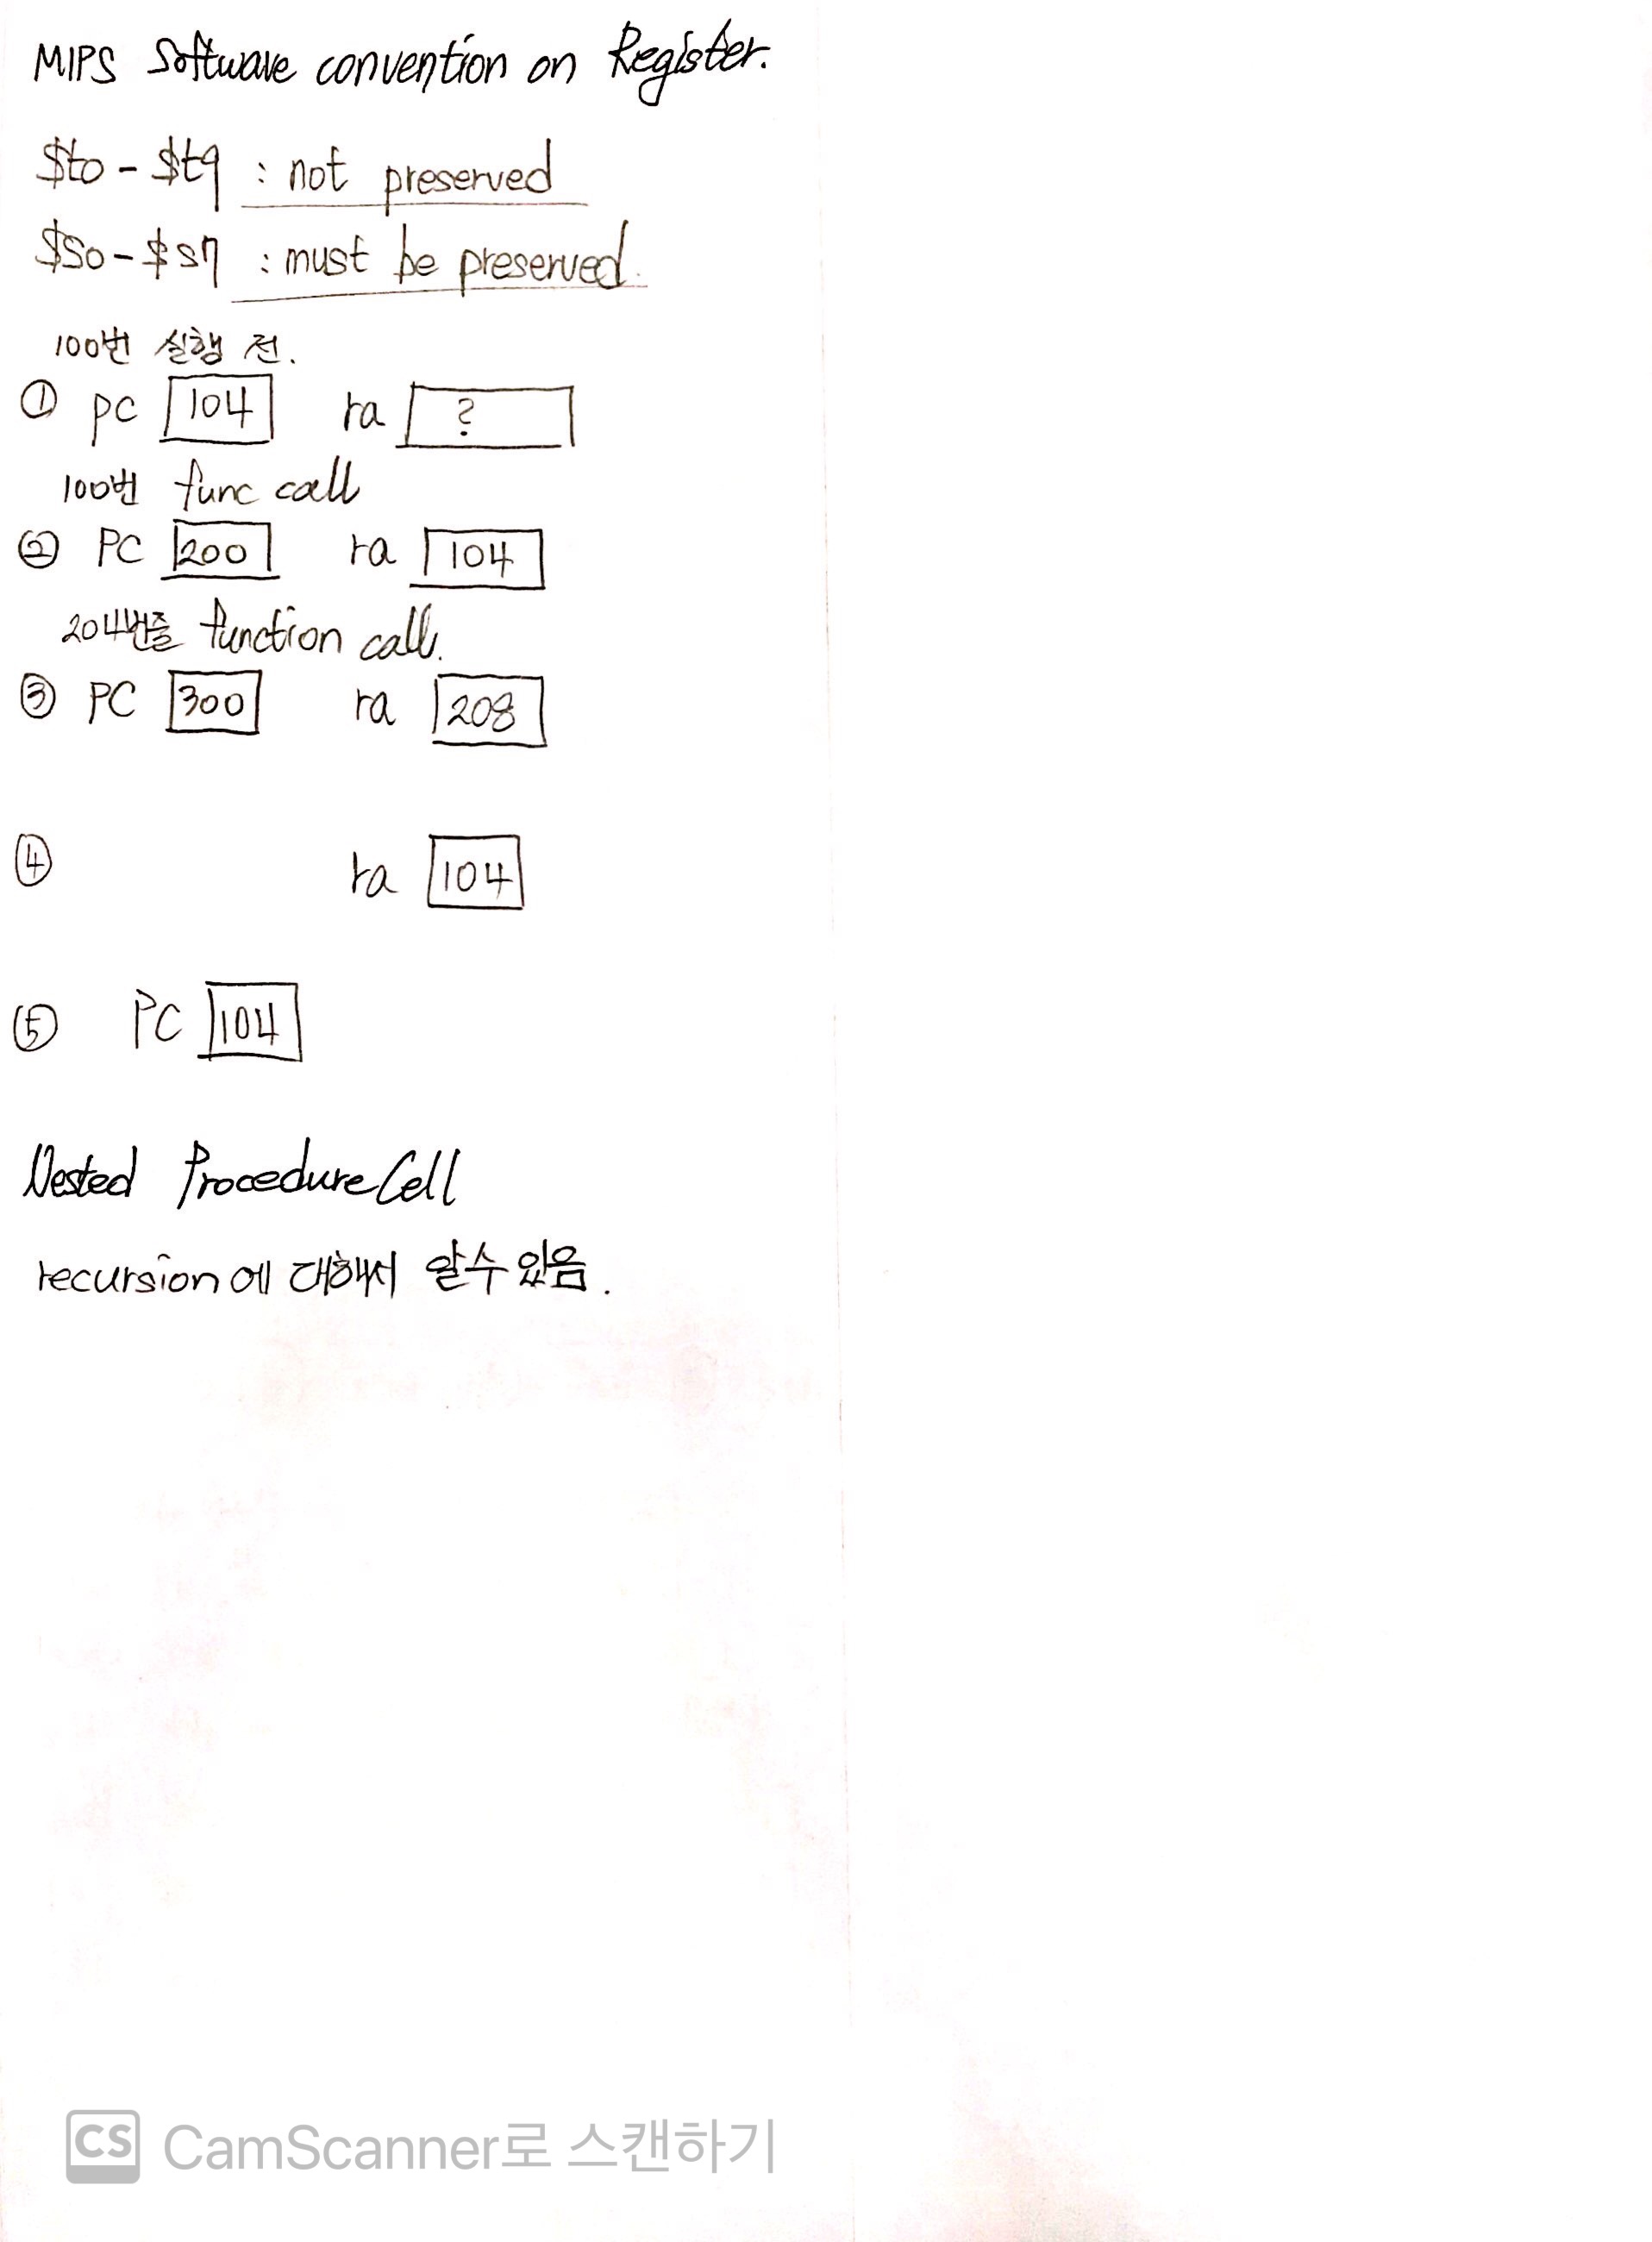 MIPS Software convention on Register.
$t0 - $t9 : not preserved
$s0 - $s7 : must be preserved.
100번 실행 전.
① PC 104 ra ?
100번 func call
② PC 200 ra 104
204번줄 function call.
③ PC 300 ra 208
④ ra 104
⑤ PC 104
Nested Procedure Cell
recursion에 대해서 알수 있음.
CS CamScanner로 스캔하기